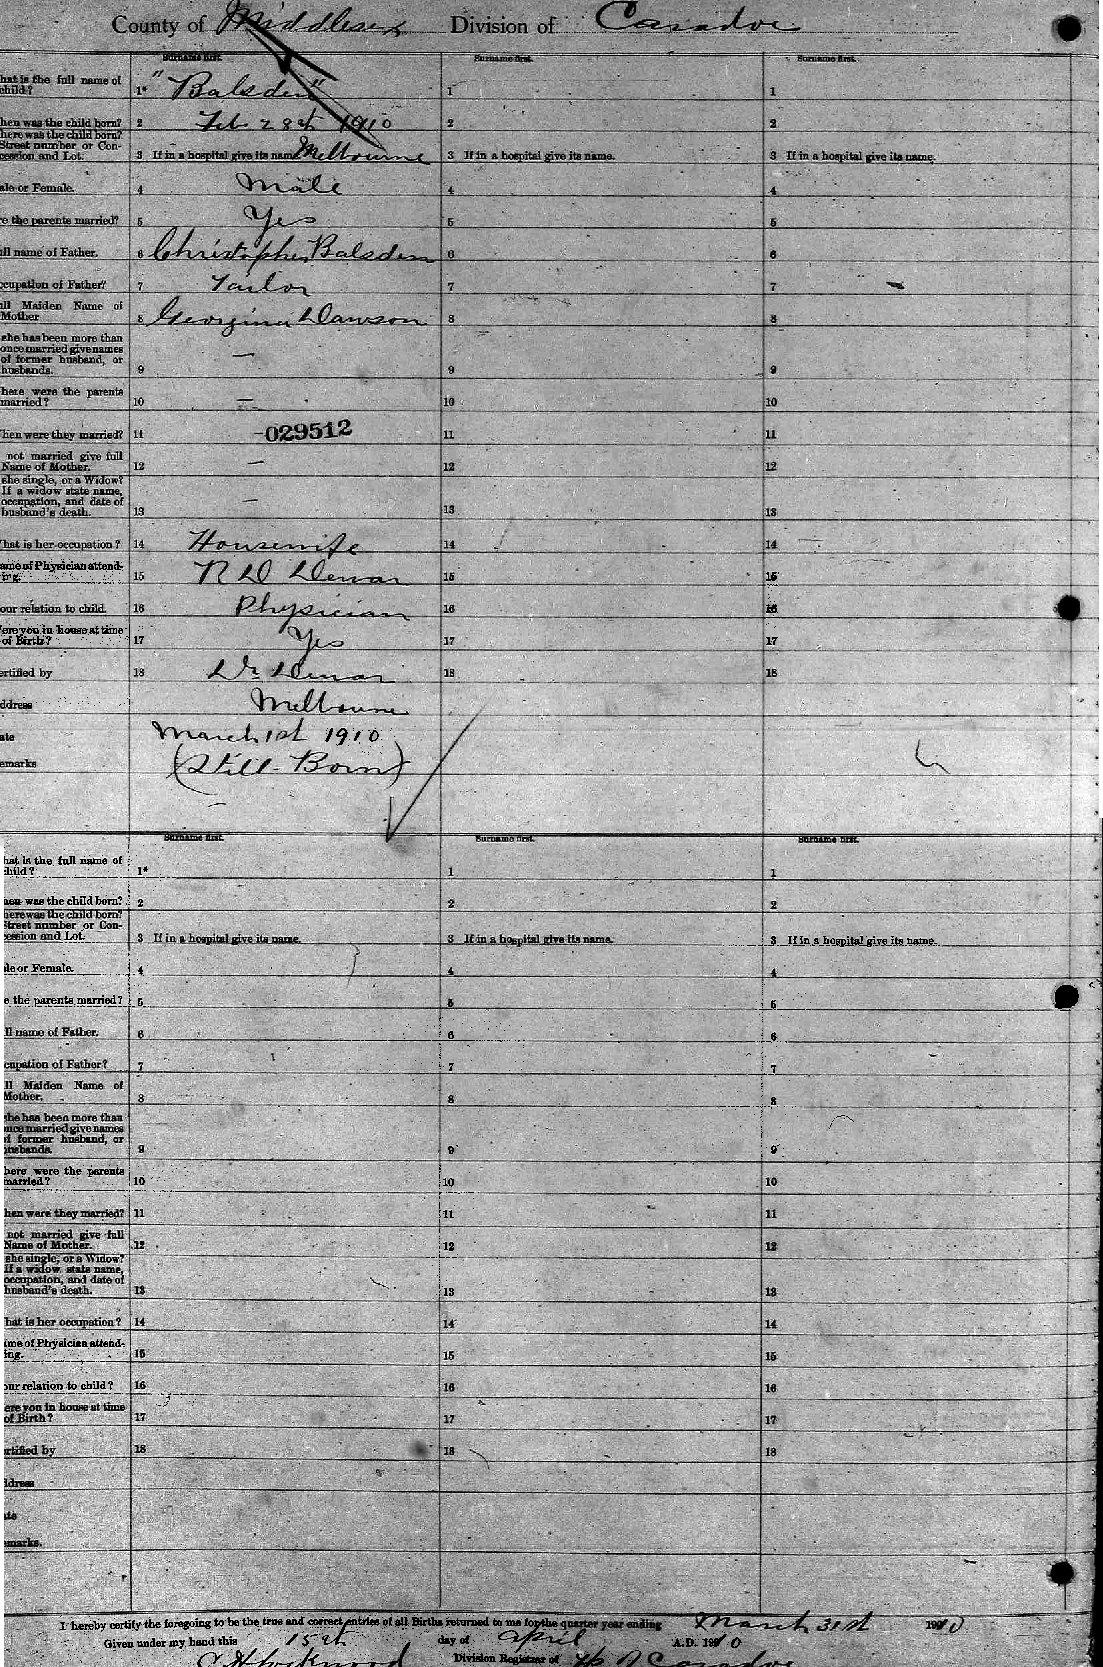 County of Middlesex Division of Caradoc
Surname first. Surname first. Surname first.
hat is the full name of
child? 1* "Balsden" 1 1
hen was the child born? 2 Feb 28th 1910 2 2
here was the child born?
Street number or Con-
cession and Lot. 3 If in a hospital give its name Melbourne 3 If in a hospital give its name. 3 If in a hospital give its name.
ale or Female. 4 Male 4 4
re the parents married? 5 Yes 5 5
ull name of Father. 6 Christopher Balsden 6 6
ccupation of Father? 7 Tailor 7 7
ull Maiden Name of
Mother 8 Georgina Dawson 8 8
she has been more than
once married give names
of former husband, or
husbands. 9 — 9 9
here were the parents
married? 10 — 10 10
hen were they married? 11 -029512 11 11
not married give full
Name of Mother. 12 — 12 12
she single, or a Widow?
If a widow state name,
occupation, and date of
husband's death. 13 — 13 13
hat is her occupation? 14 Housewife 14 14
ame of Physician attend-
ing. 15 R D Dewar 15 15
our relation to child. 16 Physician 16 16
ere you in house at time
of Birth? 17 Yes 17 17
ertified by 18 Dr Dewar 18 18
ddress Melbourne
ate March 1st 1910
emarks (Still-Born)
Surname first. Surname first. Surname first.
hat is the full name of
child? 1* 1 1
hen was the child born? 2 2 2
here was the child born?
Street number or Con-
cession and Lot. 3 If in a hospital give its name. 3 If in a hospital give its name. 3 If in a hospital give its name.
le or Female. 4 4 4
e the parents married? 5 5 5
ll name of Father. 6 6 6
cupation of Father? 7 7 7
ll Maiden Name of
Mother. 8 8 8
she has been more than
once married give names
of former husband, or
husbands. 9 9 9
here were the parents
married? 10 10 10
hen were they married? 11 11 11
not married give full
Name of Mother. 12 12 12
she single, or a Widow?
If a widow state name,
occupation, and date of
husband's death. 13 13 13
hat is her occupation? 14 14 14
ame of Physician attend-
ing. 15 15 15
our relation to child? 16 16 16
ere you in house at time
of Birth? 17 17 17
ertified by 18 18 18
ddress
ate
emarks.
I hereby certify the foregoing to be the true and correct entries of all Births returned to me for the quarter year ending March 31st 1910
Given under my hand this 15th day of April A.D. 1910
Division Registrar of Caradoc